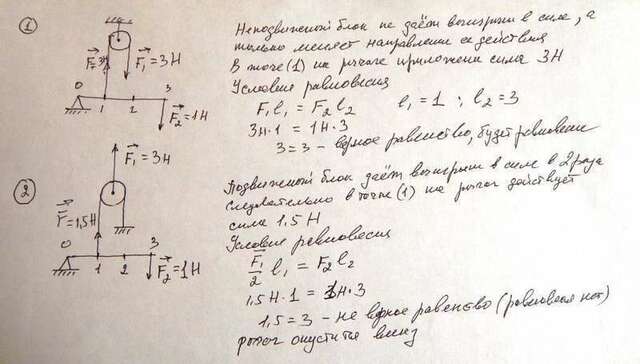 1
F=3Н
F₁=3Н
0 1 2 3
F₂=1Н
Неподвижный блок не даёт выигрыш в силе, а
только меняет направление её действия
В точке (1) на рычаг приложена сила 3Н
Условие равновесия
F₁l₁ = F₂l₂ l₁=1 ; l₂=3
3Н·1 = 1Н·3
3=3 – верное равенство, будет равновесие
2
F₁=3Н
F=1,5Н
0 1 2 3
F₂=1Н
Подвижный блок даёт выигрыш в силе в 2 раза
следовательно в точке (1) на рычаг действует
сила 1,5Н
Условие равновесия
F₁/2 l₁ = F₂l₂
1,5Н·1 = 1Н·3
1,5=3 – не верное равенство (равновесия нет)
рычаг опустится вниз